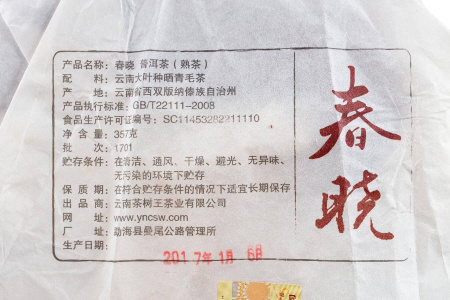 产品名称：春晓 普洱茶（熟茶）
配 料：云南大叶种晒青毛茶
产 地：云南省西双版纳傣族自治州
产品执行标准：GB/T22111-2008
食品生产许可证编号：SC11453282211110
净 含 量：357克
批 次：1701
贮存条件：在清洁、通风、干燥、避光、无异味、
无污染的环境下贮存
保 质 期：在符合贮存条件的情况下适宜长期保存
出 品 商：云南茶树王茶业有限公司
网 址：www.yncsw.com
厂 址：勐海县曼尾公路管理所
生产日期：
2017年1月 6日
春晓